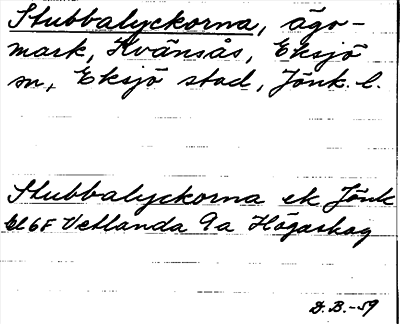 Stubbalyckorna, ägo-
mark, Kvänsås, Eksjö
sn, Eksjö stad, Jönk. l.
Stubbalyckorna ek Jönk
bl 6F Vetlanda 9a Högaskog
D.B.-59